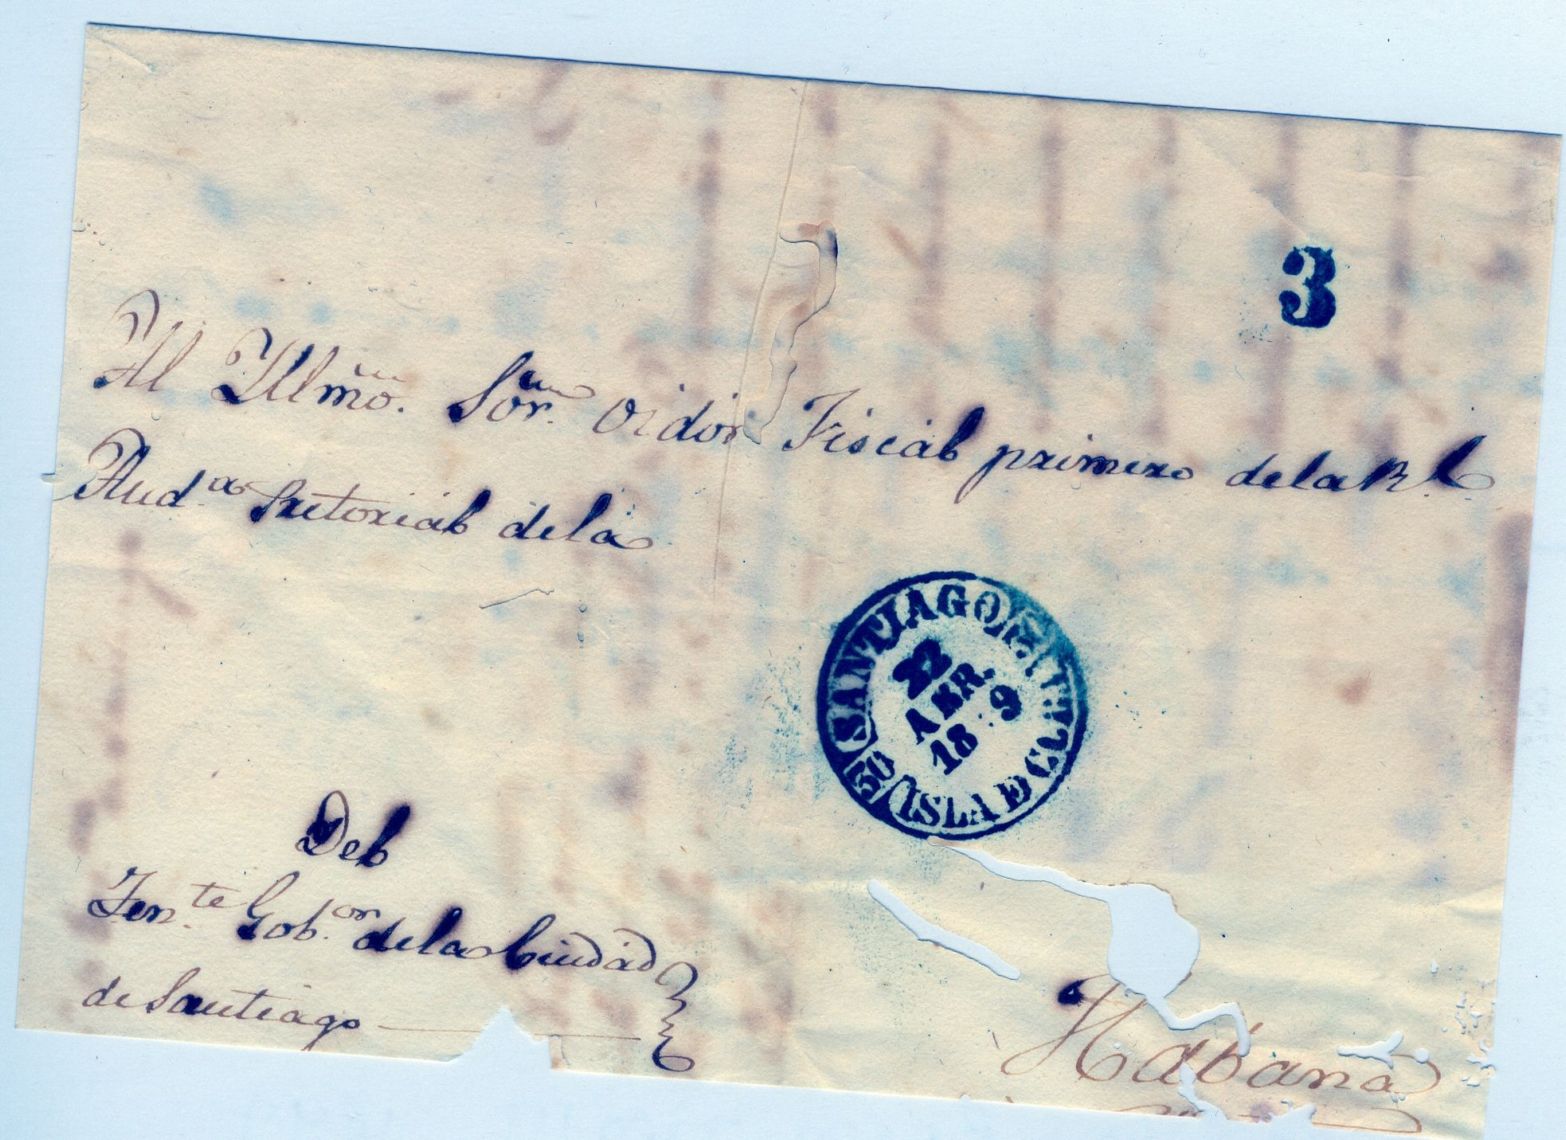 3
Al Yllmo. Sor. Oidor Fiscal primero de la Rl.
Aud.a Pretorial de la
SANTIAGO
22
ABR.
18 9
30
ISLA DE CUBA
Del
Ten.te Gob.or de la Ciudad
de Santiago
Habana